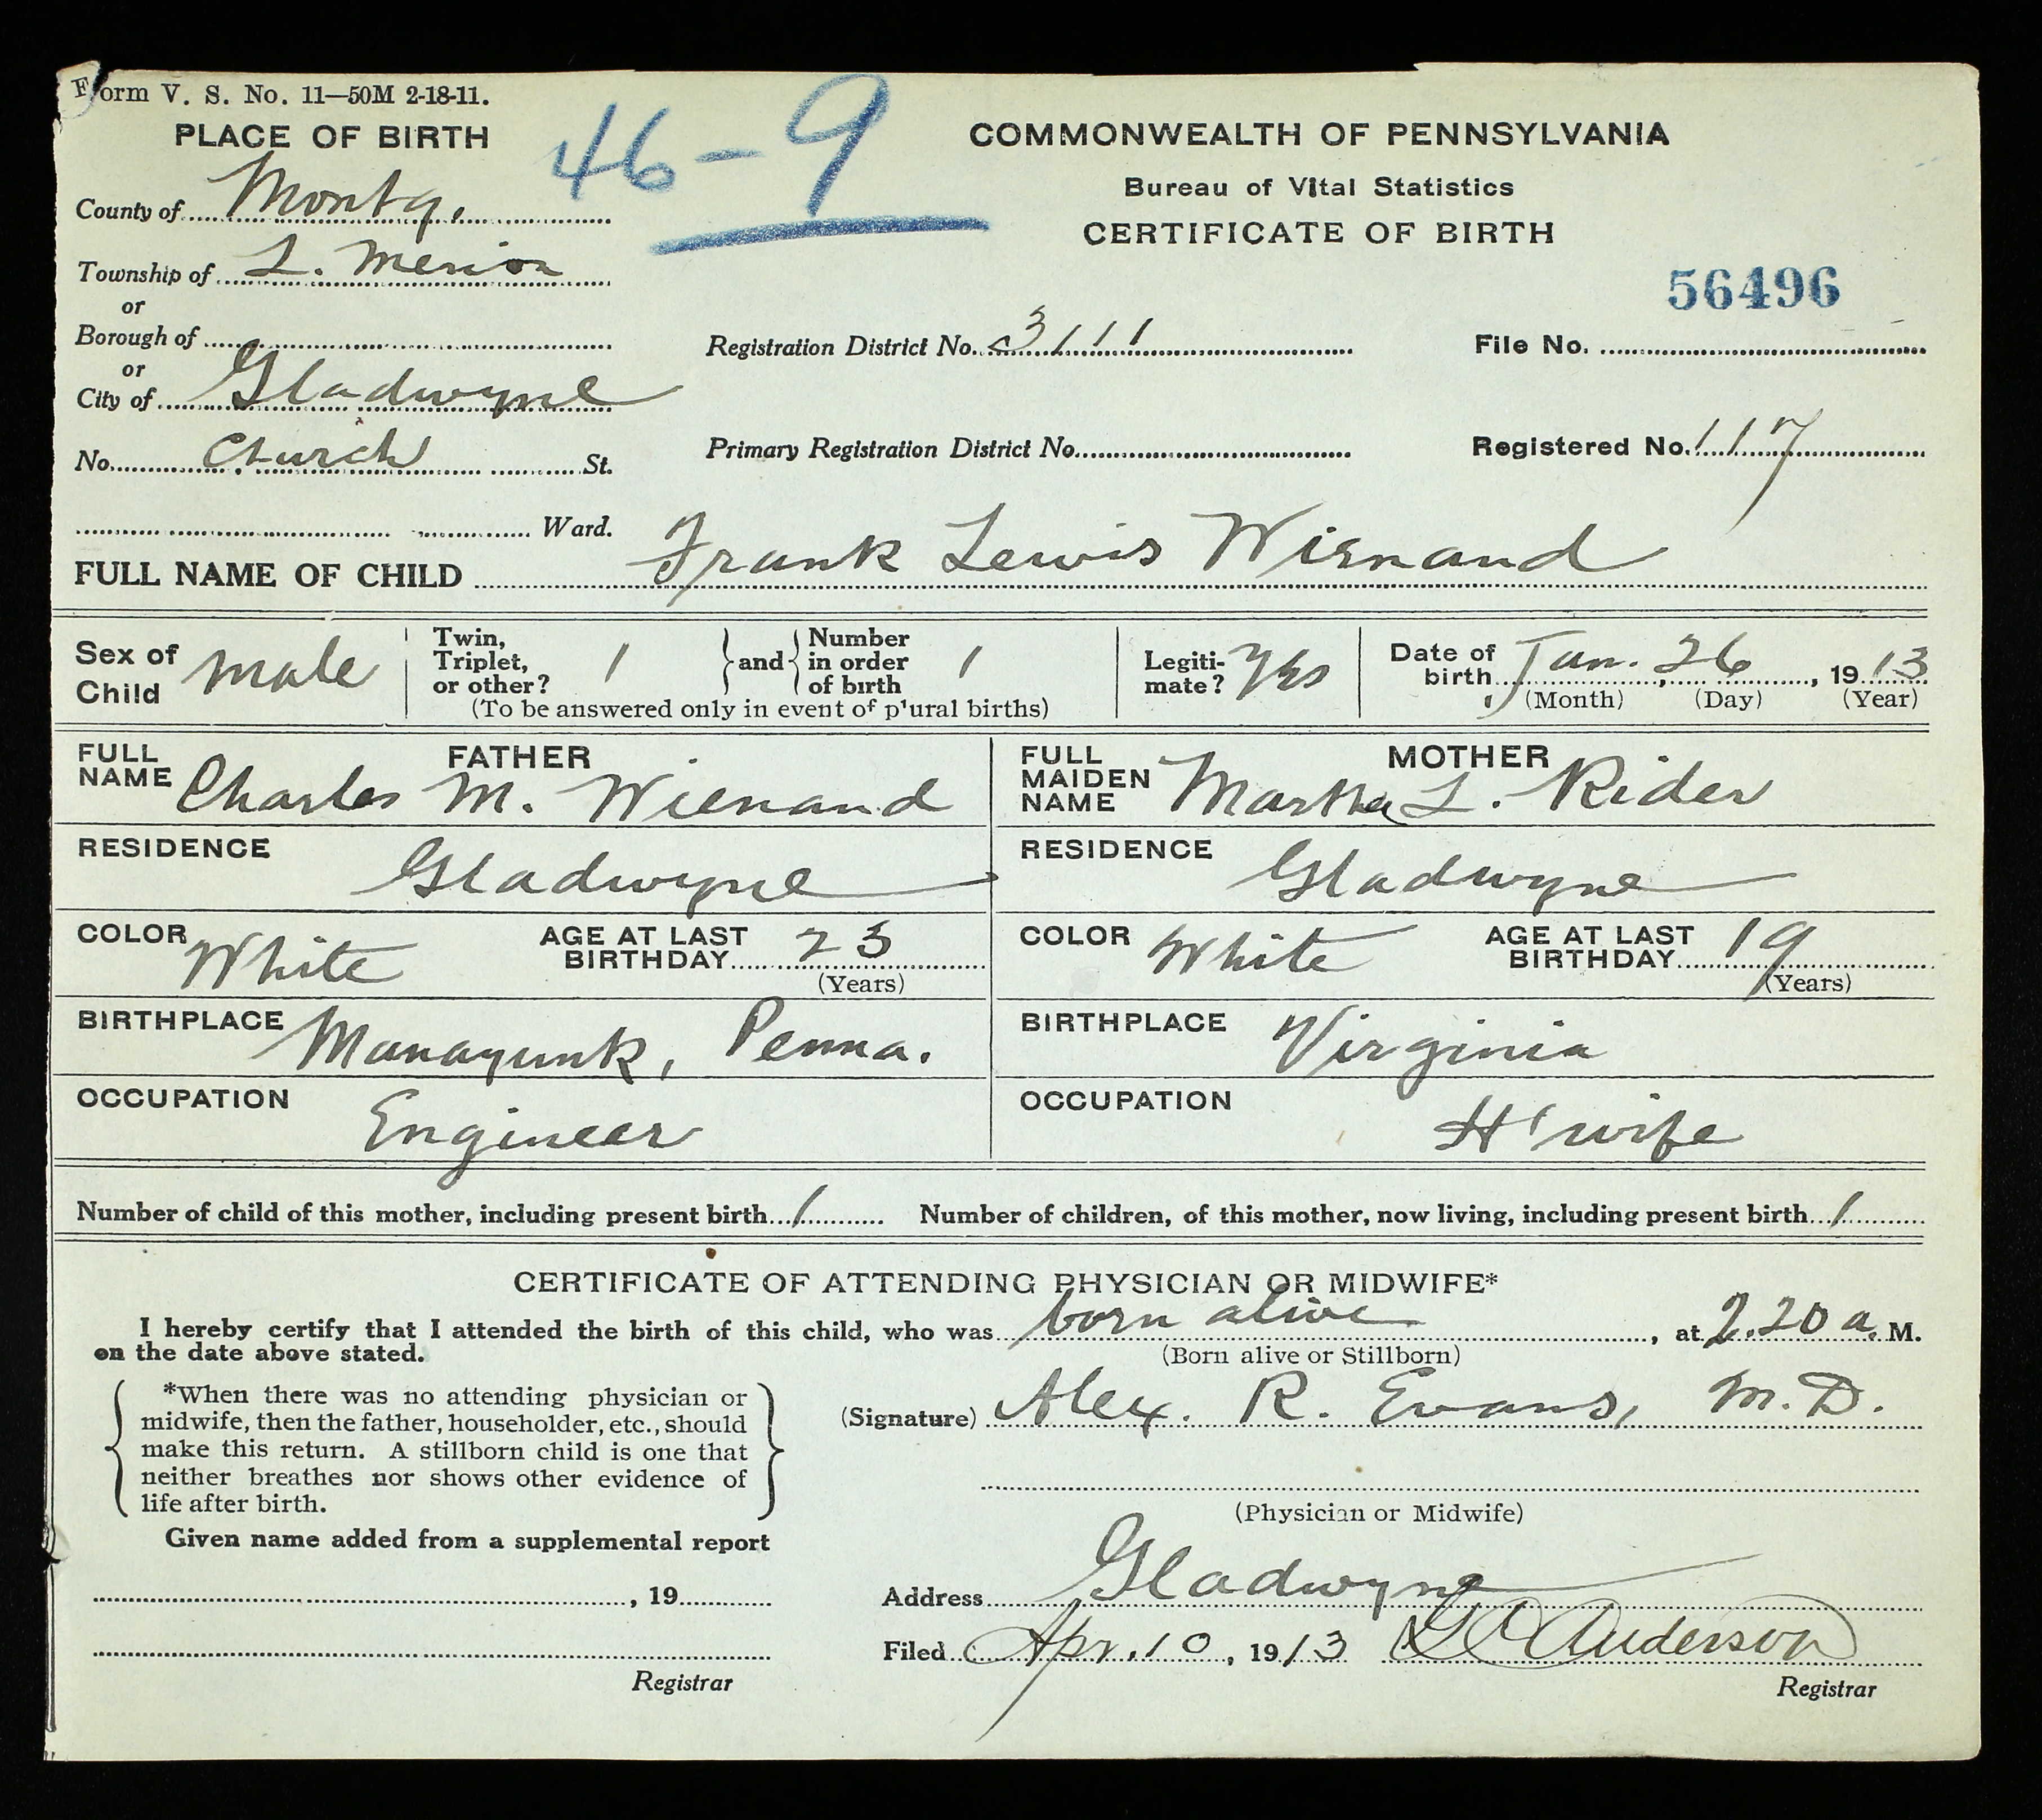 Form V. S. No. 11—50M 2-18-11.
46-9
PLACE OF BIRTH
COMMONWEALTH OF PENNSYLVANIA
Bureau of Vital Statistics
CERTIFICATE OF BIRTH
County of Montg.
Township of L. Merion
56496
or
Borough of
Registration District No. 3111
File No.
or
City of Gladwyne
No. Church St.
Primary Registration District No.
Registered No. 117
Ward.
FULL NAME OF CHILD Frank Lewis Wienand
Sex of Child male
Twin, Triplet, or other? 1 and Number in order of birth 1
(To be answered only in event of plural births)
Legitimate? Yes
Date of birth Jan. 26, 1913
(Month) (Day) (Year)
FATHER
FULL NAME Charles M. Wienand
MOTHER
FULL MAIDEN NAME Martha L. Rider
RESIDENCE Gladwyne
RESIDENCE Gladwyne
COLOR White AGE AT LAST BIRTHDAY 23 (Years)
COLOR White AGE AT LAST BIRTHDAY 19 (Years)
BIRTHPLACE Manayunk, Penna.
BIRTHPLACE Virginia
OCCUPATION Engineer
OCCUPATION H'wife
Number of child of this mother, including present birth 1 Number of children, of this mother, now living, including present birth 1
CERTIFICATE OF ATTENDING PHYSICIAN OR MIDWIFE*
I hereby certify that I attended the birth of this child, who was born alive, at 2.20 a. M.
on the date above stated.
(Born alive or Stillborn)
*When there was no attending physician or
midwife, then the father, householder, etc., should
make this return. A stillborn child is one that
neither breathes nor shows other evidence of
life after birth.
(Signature) Alex. R. Evans, M.D.
(Physician or Midwife)
Given name added from a supplemental report
, 19
Registrar
Address Gladwyne
Filed Apr. 10, 1913 Anderson
Registrar